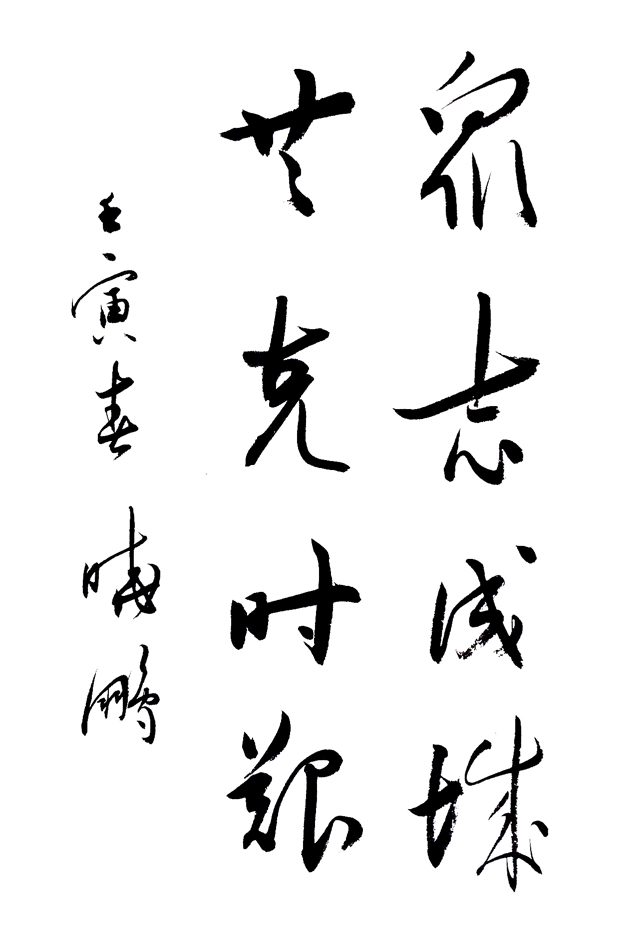 众志成城
共克时艰
壬寅春 晓鹏